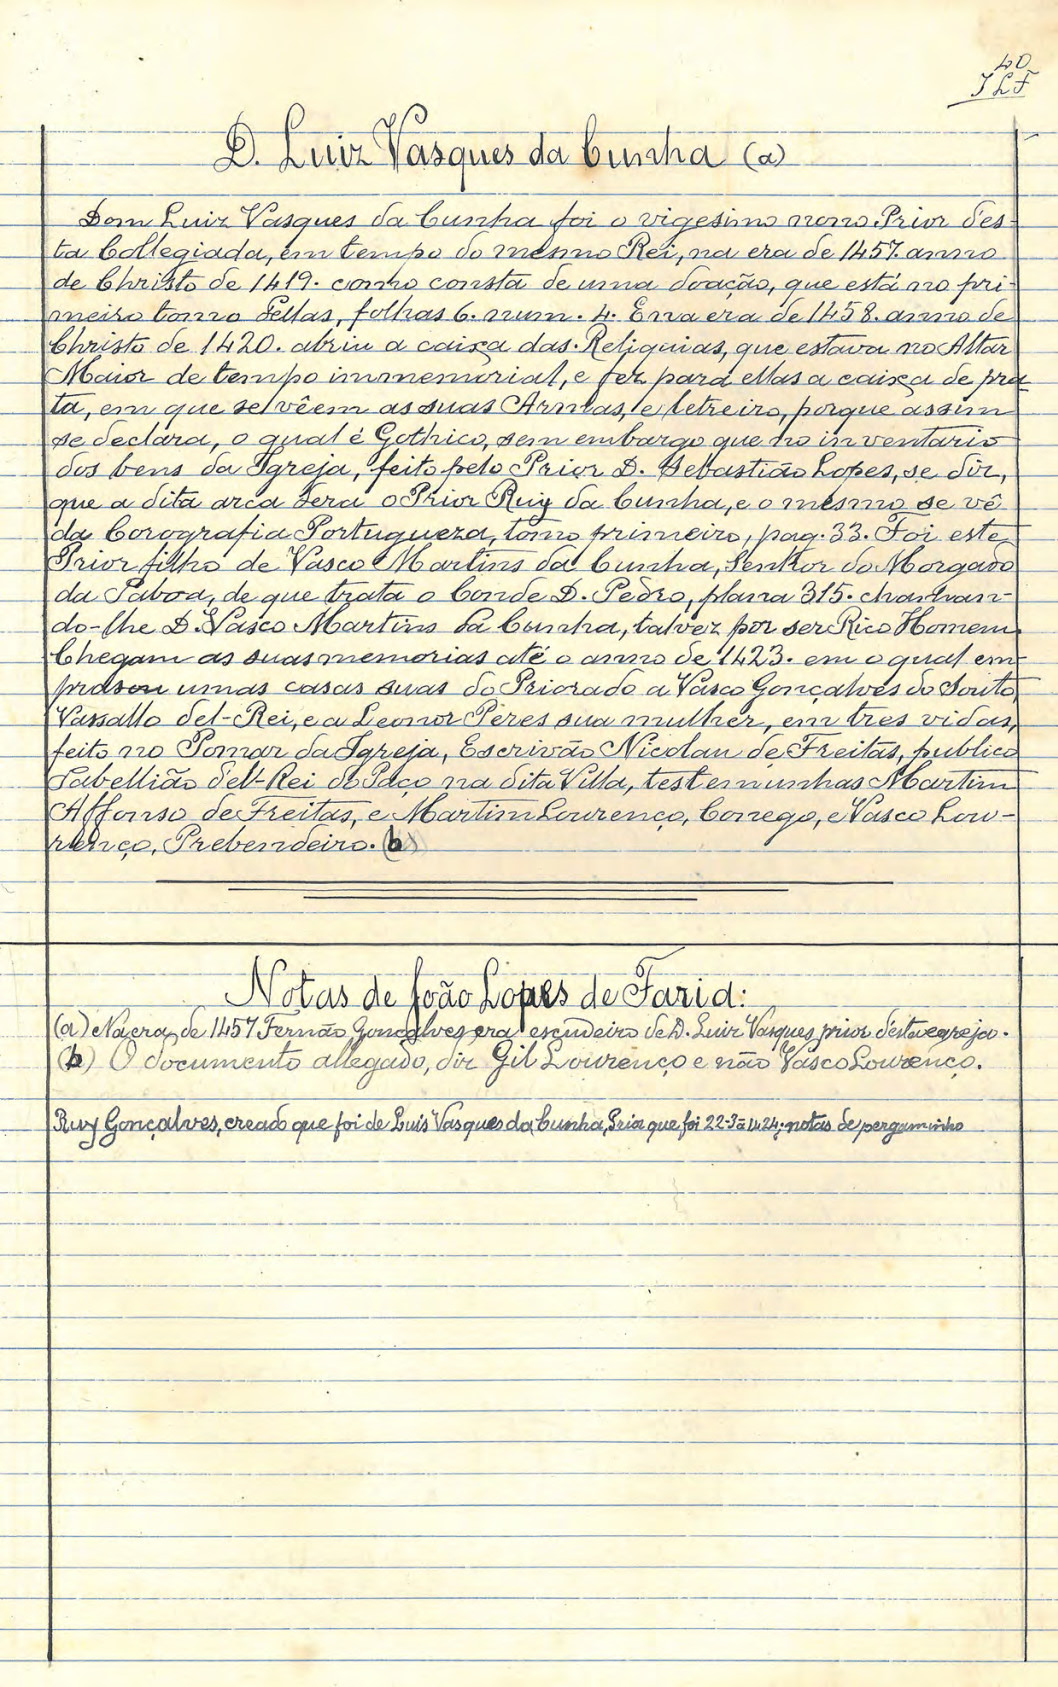 40
JLF
D. Luiz Vasques da Cunha (a)
Dom Luiz Vasques da Cunha foi o vigesimo nono Prior des-
ta Collegiada, em tempo do mesmo Rei, na era de 1457. anno
de Christo de 1419. como consta de uma doação, que está no pri-
meiro tomo Pellas, folhas 6. num. 4. E na era de 1458. anno de
Christo de 1420. abriu a caixa das Reliquias, que estava no Altar
Maior de tempo immemorial, e fez para ellas a caixa de pra
ta, em que se vêem as suas Armas, e letreiro, porque assim
se declara, o qual é Gothico, sem embargo que no inventario
dos bens da Igreja, feito pelo Prior D. Sebastião Lopes, se diz,
que a dita arca dera o Prior Ruy da Cunha, e o mesmo se vê
da Corografia Portugueza, tomo primeiro, pag. 33. Foi este
Prior filho de Vasco Martins da Cunha, Senhor do Morgado
da Taboa, de que trata o Conde D. Pedro, plana 315. chaman-
do-lhe D. Vasco Martins da Cunha, talvez por ser Rico Homem.
Chegam as suas memorias até o anno de 1423. em o qual em-
prasou umas casas suas do Priorado a Vasco Gonçalves do Souto,
Vassallo del-Rei, e a Leonor Peres sua mulher, em tres vidas,
feito no Pomar da Igreja, Escrivão Nicolau de Freitas, publico
Tabellião del-Rei do Paço na dita Villa, testemunhas Martim
Affonso de Freitas, e Martim Lourenço, Conego, e Vasco Lou-
renço, Prebendeiro. (b)
Notas de João Lopes de Faria:
(a) Na era de 1457 Fernão Gonçalves era escudeiro de D. Luiz Vasques prior desta egreja.
(b) O documento allegado, diz Gil Lourenço e não Vasco Lourenço.
Ruy Gonçalves, creado que foi de Luis Vasques da Cunha, Prior que foi 22-3º-1424; notas de pergaminho